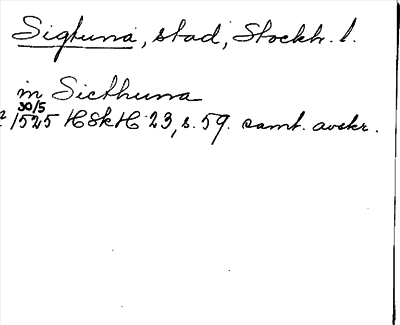 Sigtuna, stad, Stockh. l.
in Sicthuna
30/5
1525 HSkH 23, s. 59. samt. avskr.